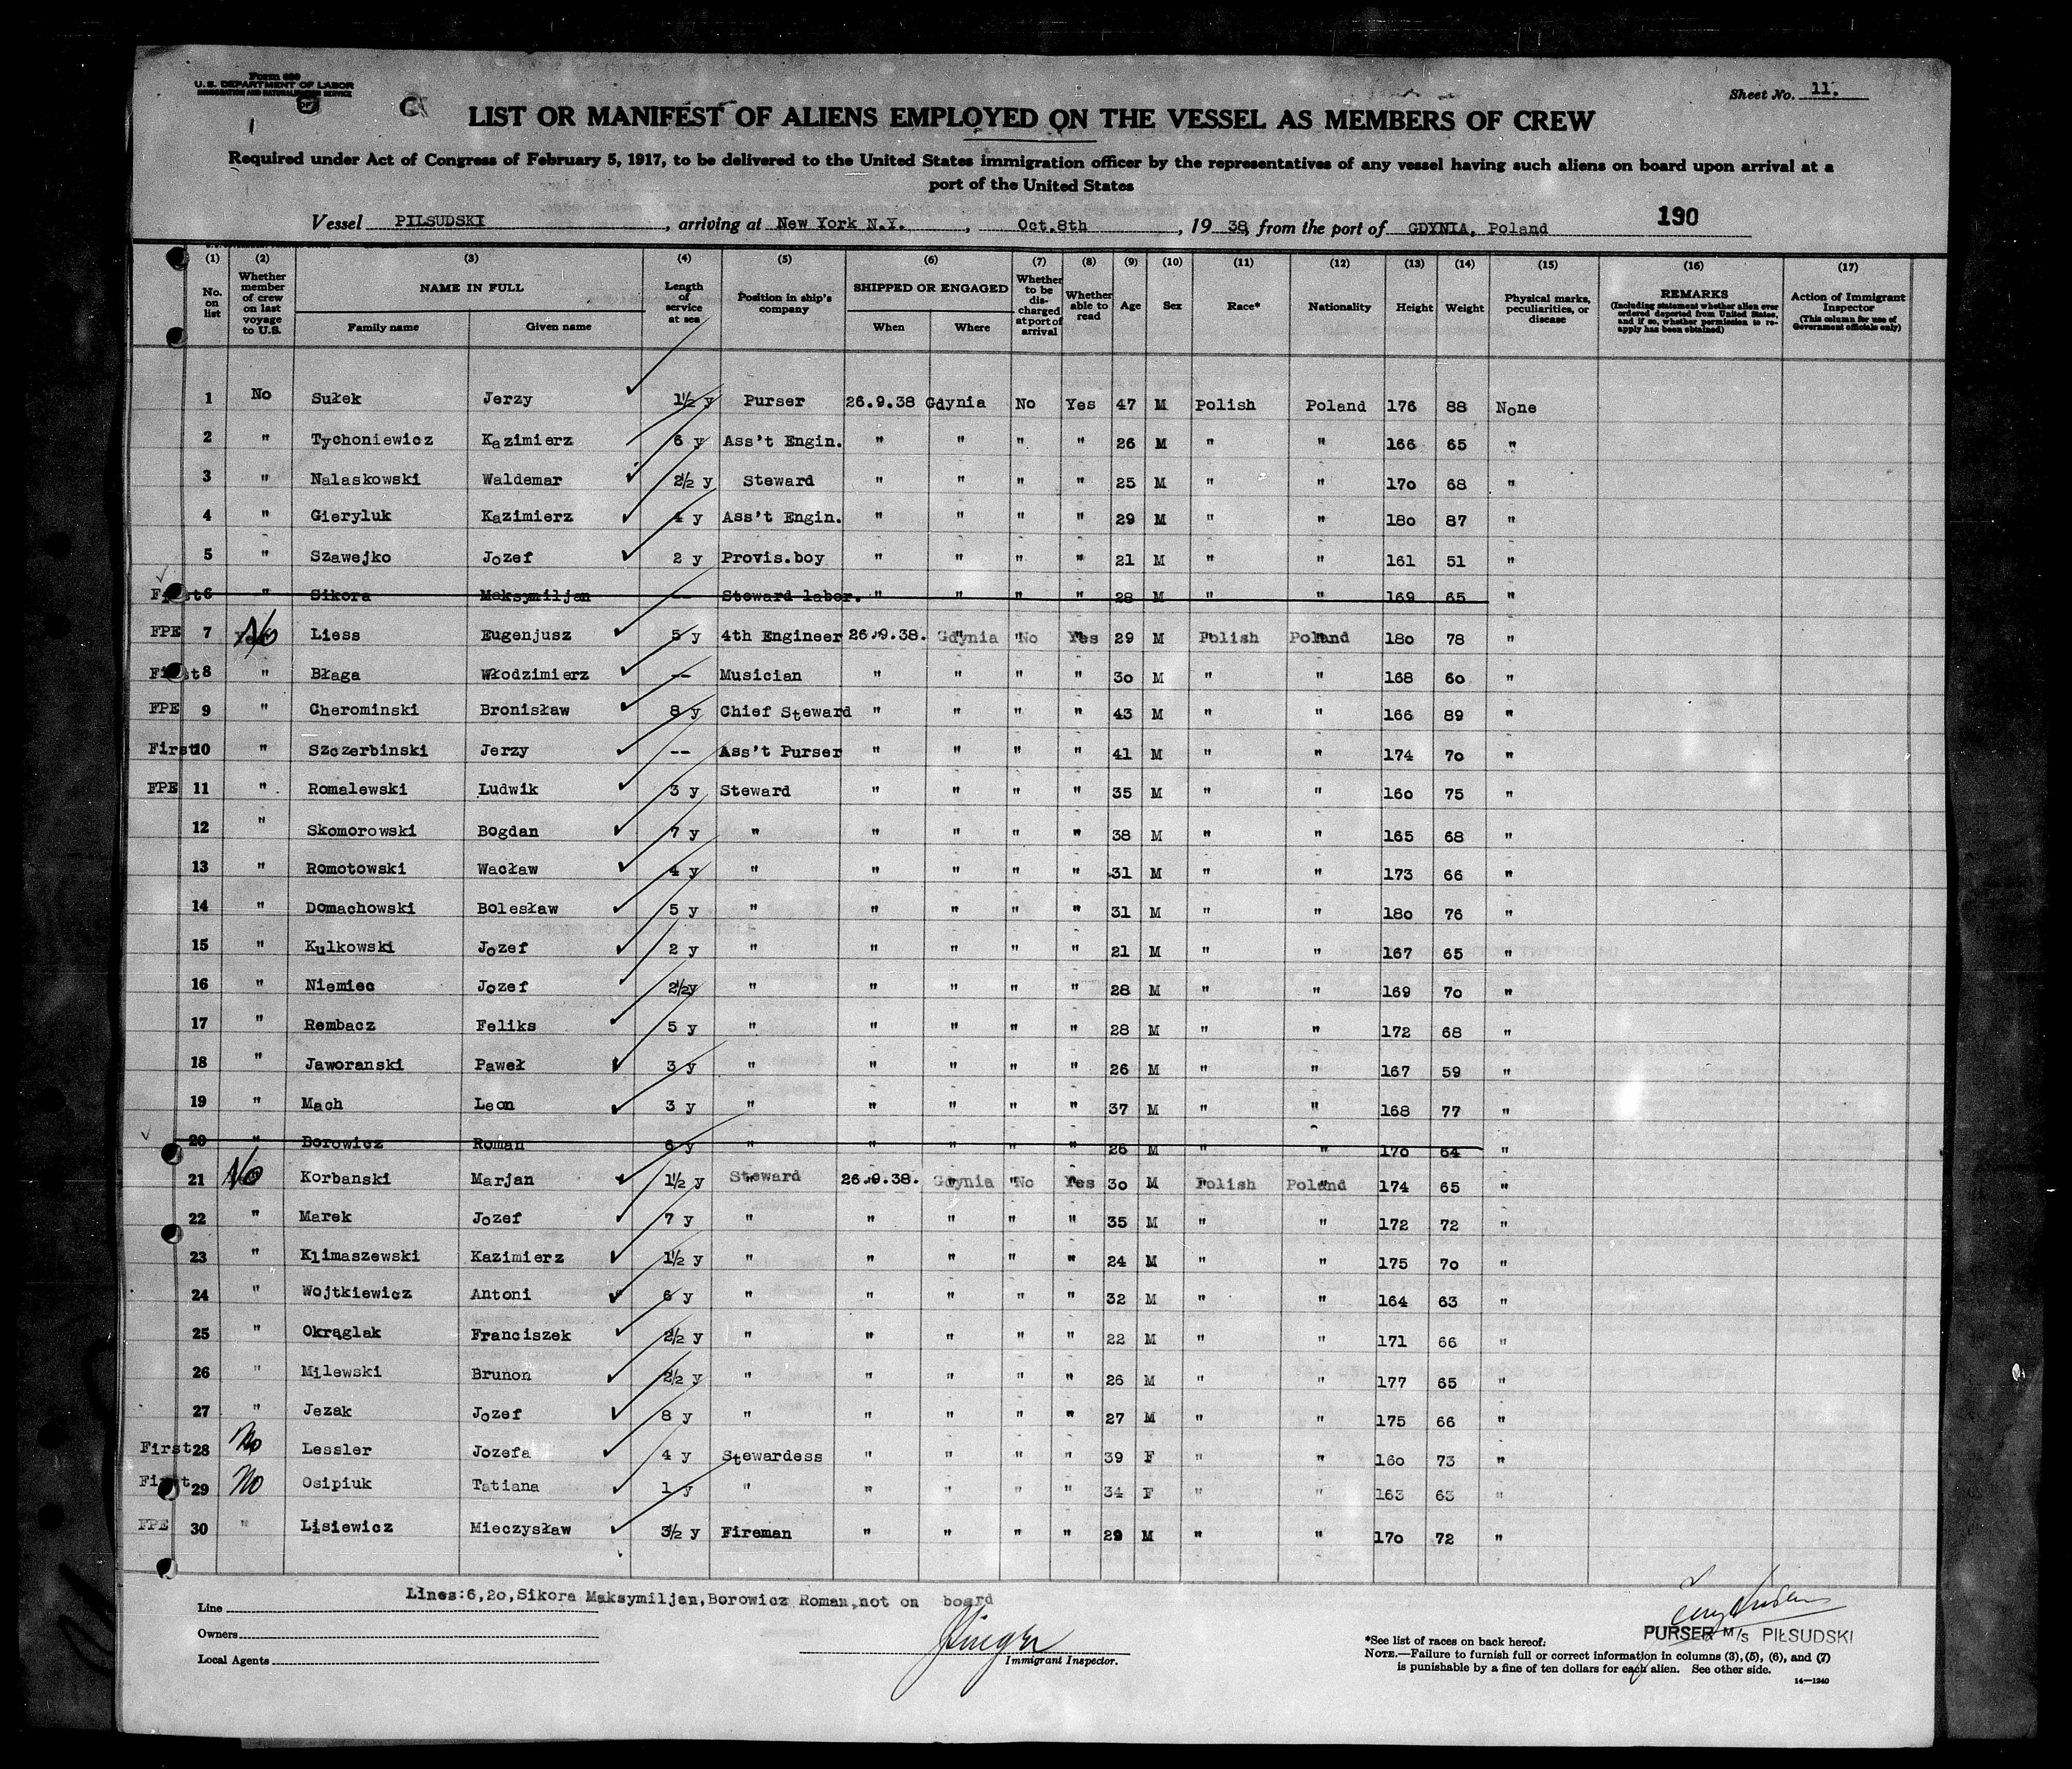 Form 680
U.S. DEPARTMENT OF LABOR
IMMIGRATION AND NATURALIZATION SERVICE
Sheet No. 11.
LIST OR MANIFEST OF ALIENS EMPLOYED ON THE VESSEL AS MEMBERS OF CREW
Required under Act of Congress of February 5, 1917, to be delivered to the United States immigration officer by the representatives of any vessel having such aliens on board upon arrival at a
port of the United States
190
Vessel PILSUDSKI, arriving at New York N.Y., Oct.8th, 19 38, from the port of GDYNIA, Poland
(1) (2) (3) (4) (5) (6) (7) (8) (9) (10) (11) (12) (13) (14) (15) (16) (17)
No. on list
Whether member of crew on last voyage to U.S.
NAME IN FULL
Family name Given name
Length of service at sea
Position in ship's company
SHIPPED OR ENGAGED
When Where
Whether to be discharged at port of arrival
Whether able to read
Age
Sex
Race*
Nationality
Height
Weight
Physical marks, peculiarities, or disease
REMARKS
(Including statement whether alien ever ordered deported from United States, and if so, whether permission to reapply has been obtained)
Action of Immigrant Inspector
(This column for use of Government officials only)
1 No Sułek Jerzy 1½ y Purser 26.9.38 Gdynia No Yes 47 M Polish Poland 176 88 None
2 " Tychoniewicz Kazimierz 6 y Ass't Engin. " " " " 26 M " " 166 65 "
3 " Nalaskowski Waldemar 2½ y Steward " " " " 25 M " " 170 68 "
4 " Gieryluk Kazimierz 4 y Ass't Engin. " " " " 29 M " " 180 87 "
5 " Szawejko Jozef 2 y Provis.boy " " " " 21 M " " 161 51 "
First 6 " Sikora Maksymiljan -- Steward labor. " " " " 28 M " " 169 65 "
FPE 7 No Liess Eugenjusz 5 y 4th Engineer 26.9.38. Gdynia No Yes 29 M Polish Poland 180 78 "
First 8 " Błaga Włodzimierz -- Musician " " " " 30 M " " 168 60 "
FPE 9 " Cherominski Bronisław 8 y Chief Steward " " " " 43 M " " 166 89 "
First 10 " Szczerbinski Jerzy -- Ass't Purser " " " " 41 M " " 174 70 "
FPE 11 " Romalewski Ludwik 3 y Steward " " " " 35 M " " 160 75 "
12 " Skomorowski Bogdan 7 y " " " " " 38 M " " 165 68 "
13 " Romotowski Wacław 4 y " " " " " 31 M " " 173 66 "
14 " Domachowski Bolesław 5 y " " " " " 31 M " " 180 76 "
15 " Kulkowski Jozef 2 y " " " " " 21 M " " 167 65 "
16 " Niemiec Jozef 2½y " " " " " 28 M " " 169 70 "
17 " Rembacz Feliks 5 y " " " " " 28 M " " 172 68 "
18 " Jaworanski Paweł 3 y " " " " " 26 M " " 167 59 "
19 " Mach Leon 3 y " " " " " 37 M " " 168 77 "
20 " Borowicz Roman 6 y " " " " " 26 M " " 170 64 "
21 No Korbanski Marjan 1½ y Steward 26.9.38. Gdynia No Yes 30 M Polish Poland 174 65 "
22 " Marek Jozef 7 y " " " " " 35 M " " 172 72 "
23 " Klimaszewski Kazimierz 1½ y " " " " " 24 M " " 175 70 "
24 " Wojtkiewicz Antoni 6 y " " " " " 32 M " " 164 63 "
25 " Okrąglak Franciszek 2½ y " " " " " 22 M " " 171 66 "
26 " Milewski Brunon 2½ y " " " " " 26 M " " 177 65 "
27 " Jezak Jozef 8 y " " " " " 27 M " " 175 66 "
First 28 No Lessler Jozefa 4 y Stewardess " " " " 39 F " " 160 73 "
First 29 No Osipiuk Tatiana 1 y " " " " " 34 F " " 163 63 "
FPE 30 " Lisiewicz Mieczysław 3½ y Fireman " " " " 29 M " " 170 72 "
Lines:6,20,Sikora Maksymiljan,Borowicz Roman,not on board
Line
Owners
Local Agents
Immigrant Inspector.
PURSER M/S PIŁSUDSKI
*See list of races on back hereof.
NOTE.—Failure to furnish full or correct information in columns (3), (5), (6), and (7)
is punishable by a fine of ten dollars for each alien. See other side.
14—1240